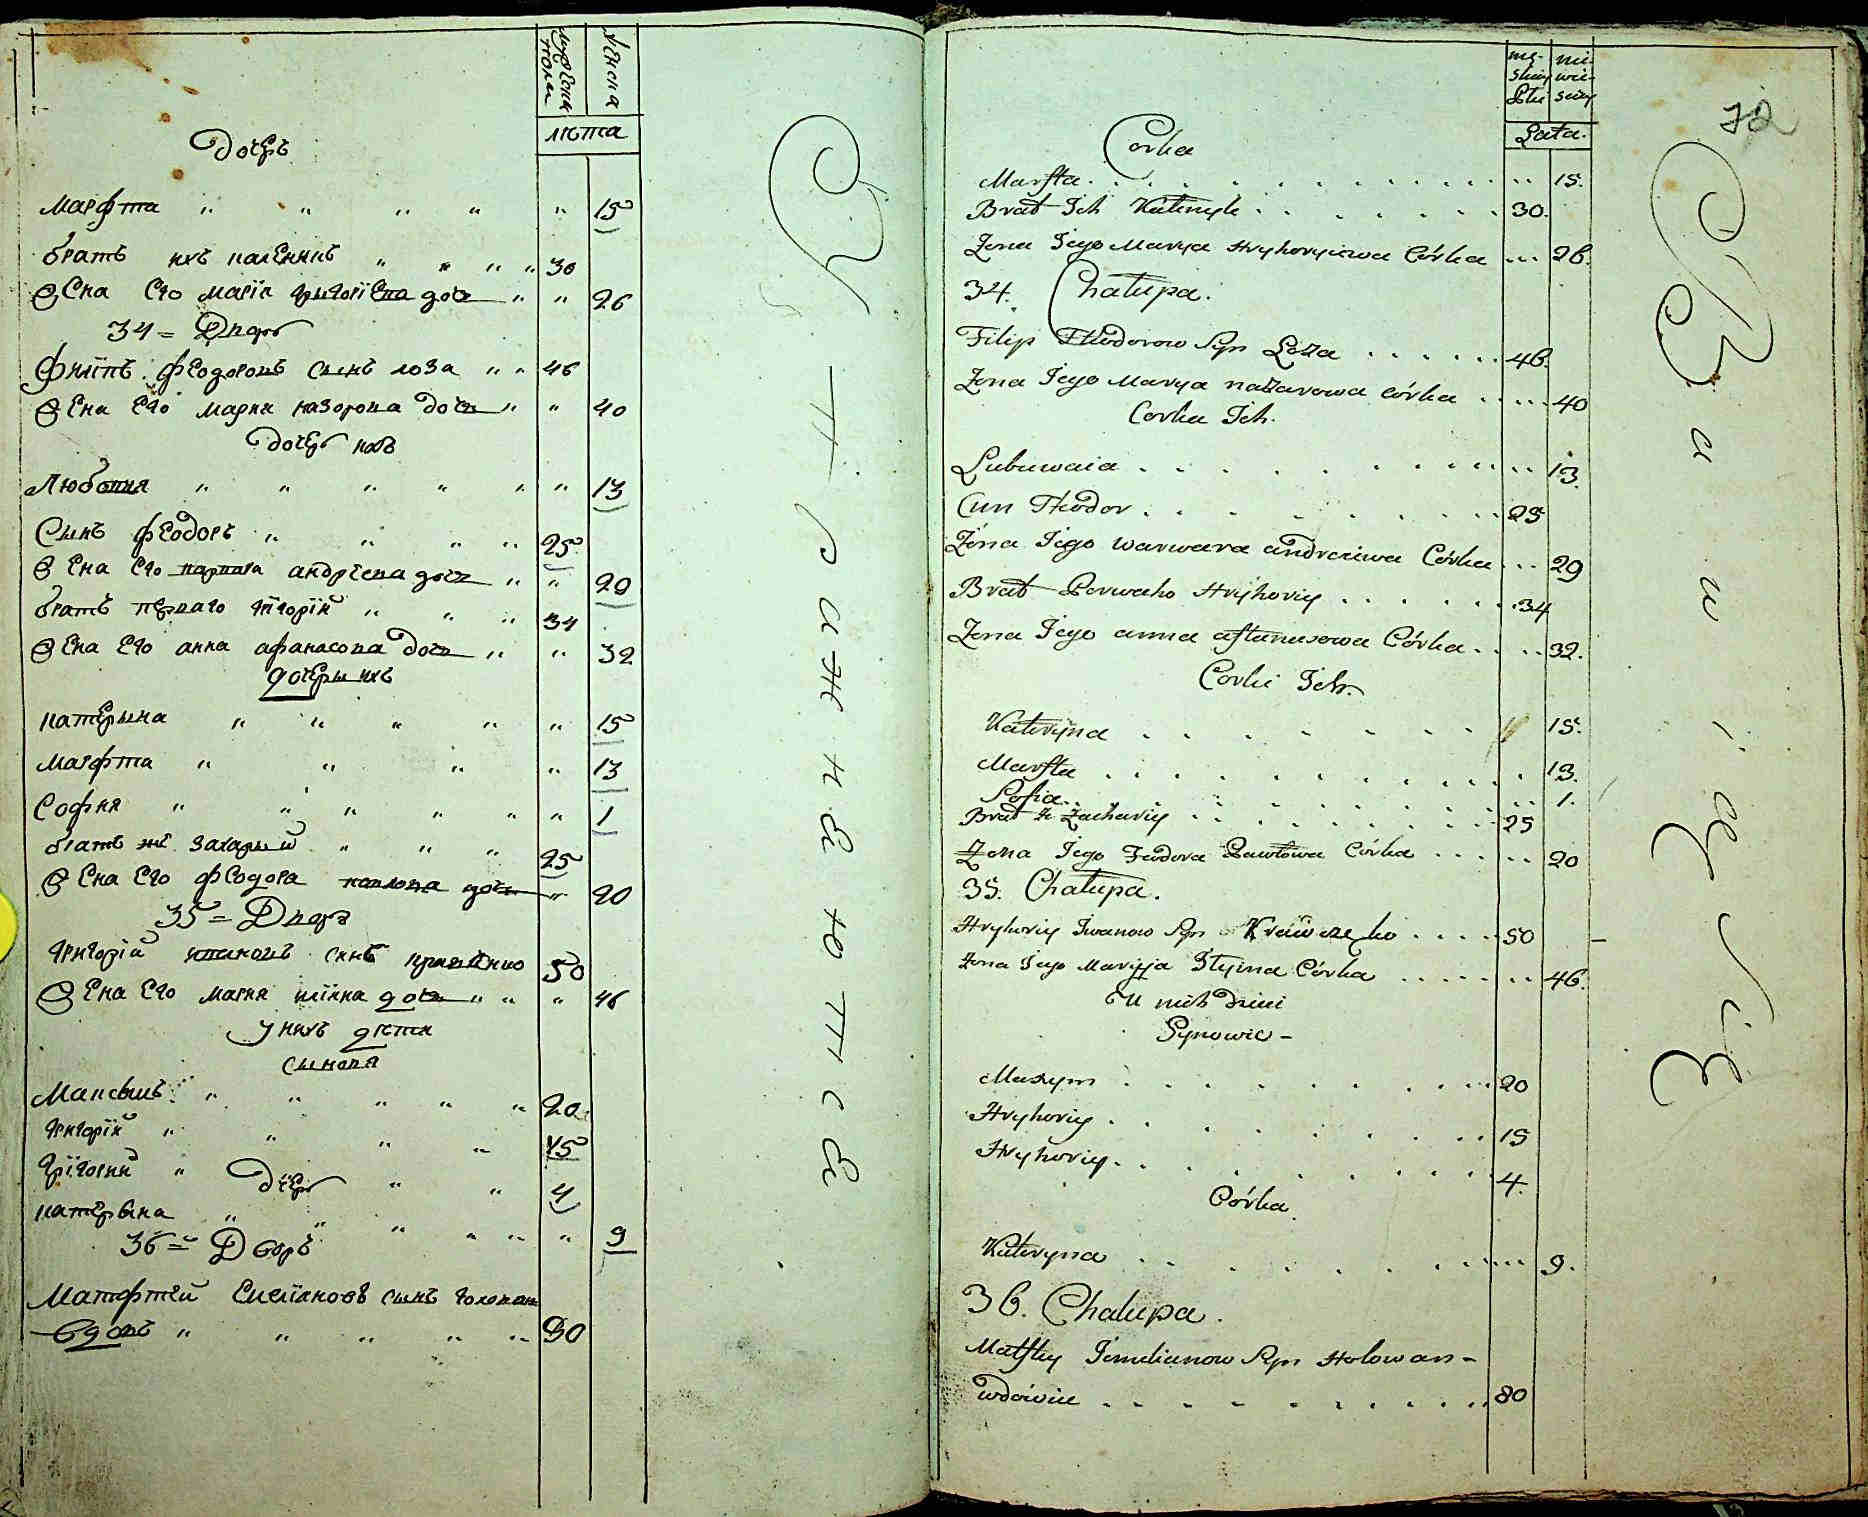 мужеска полу
женска
лѣта
Дочерь
Марфта " " " " " 15
братъ ихъ каленикъ " " " " 30
Жена Его Марія григоріева дочь " " 26
34 = Дворъ
Филіпъ Феодоровъ сынъ лоза " " 46
Жена Его Мария назорова дочь " " 40
Дочерь ихъ
Любовия " " " " " " 13
Сынъ Феодоръ " " " " 25
Жена Его варвара андреева дочь " " 29
братъ перваго григорій " " " 34
Жена Его анна афанасова дочь " " 32
дочеры ихъ
катерына " " " " " 15
Марфта " " " " 13
София " " " " " " 1
братъ же Захарый " " " 25
Жена Его Феодора павлова дочь " 20
35 = Дворъ
Григорій ивановъ синъ кравченко 50
Жена Его Мария илііна дочь " " " 46
у нихъ дѣти
сыновя
Максымъ " " " " " 20
Григорій " " " " 15
Грігорий " " " 4
Дочерь
катерына " " " " " " 9
36 = Дворъ
Матфтей Емеліановъ сынъ голован
вдовъ " " " " " 80
Страж не ю т с е
mę- skiey Płci
nie- wie- sciey
Lata.
72
Corka
Marfta . . . . . . . . . 15.
Brat Ich Kalenyk . . . . . . . 30.
Zona Iego Marya Hryhoryiewa Córka . . . 26.
34. Chalupa.
Filip Fheodorow Syn Loza . . . . . . 46.
Zona Iego Marya nazarowa córka . . . . . 40
Corka Ich.
Lubuwaia . . . . . . . . . 13.
Cun Fheodor . . . . . . . . 25
Zóna Iego warwara andreiewa Córka . . . 29
Brat Perwaho Hryhoriy . . . . . . . 34
Zona Iego anna aftanasowa Córka . . . . 32.
Corki Ich.
Kateryna . . . . . . . . 15.
Marfta . . . . . . . . . . 13.
Sofia . . . . . . . . . 1.
Brat Ż Zachariy . . . . . . . . . 25
Zona Iego Feodora Pawłowa Córka . . . . . 20
35. Chatupa.
Hryhoriy Iwanow Syn Krawczeko . . . . 50
Zona Iego Maryja Ilyina Córka . . . . . . . 46.
U nich Dzieci
Synowie -
Maxym . . . . . . . . 20
Hryhoriy . . . . . . . . . 15
Hryhoriy . . . . . . . . . 4.
Córka
Kateryna . . . . . . . . . . 9.
36. Chalupa.
Matftey Iemelianow Syn Holowan -
wdowiec . . . . . . . . . . 80